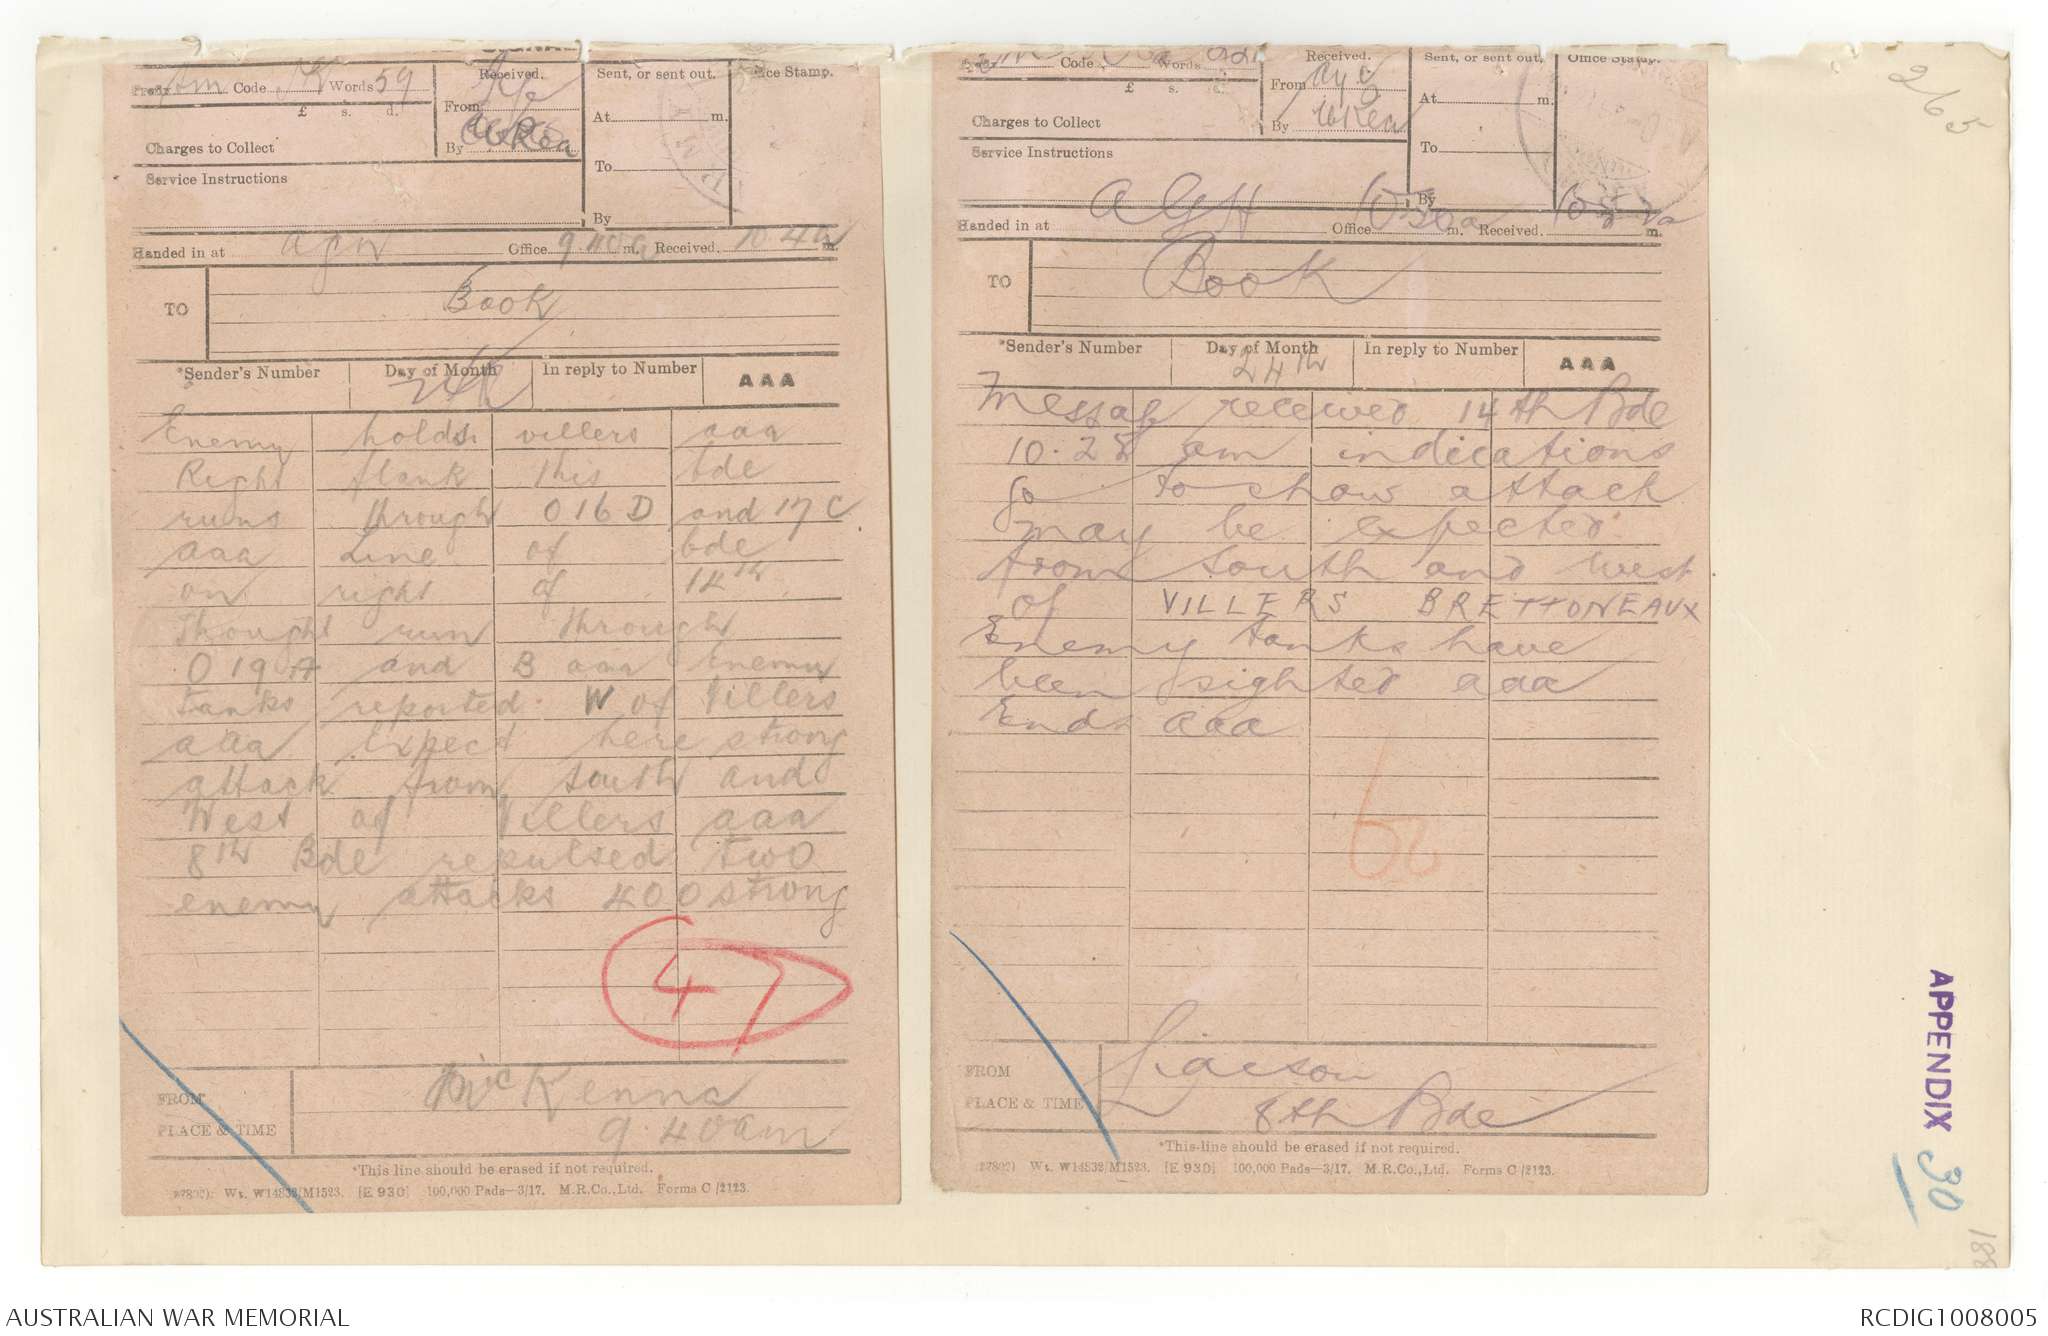 Prefix Sm Code Words 59
£ s. d.
Charges to Collect
Service Instructions
Received.
From
By
Sent, or sent out.
At m.
To
By
ice Stamp.
Handed in at Office 9.40a m. Received. 10.4a m.
TO Book
*Sender's Number Day of Month In reply to Number AAA
24th
Enemy holds villers aaa
Right flank this bde
runs through O16D and 17C
aaa Line of bde
on right of 14th
Thought run through
O19A and B aaa Enemy
Tanks reported W of Villers
aaa Expect here strong
attack from south and
West of Villers aaa
8th Bde repulsed two
enemy attacks 400 strong
47
FROM McKenna
PLACE & TIME 9.40am
*This line should be erased if not required.
Wt. W14832/M1523. [E 930] 100,000 Pads—3/17. M.R.Co., Ltd. Forms C/2123.
Code Words
£ s. d.
Charges to Collect
Service Instructions
Received.
From
By
Sent, or sent out.
At m.
To
By
Office Stamp.
Handed in at AGH Office 10.50a m. Received. m.
TO Book
*Sender's Number Day of Month In reply to Number AAA
24th
Message received 14th Bde
10.28 am indications
go to show attack
may be expected
from south and west
of VILLERS BRETTONEAUX
Enemy tanks have
been sighted aaa
Ends aaa
FROM Liaeson
PLACE & TIME 8th Bde
*This line should be erased if not required.
Wt. W14832/M1523. [E 930] 100,000 Pads—3/17. M.R.Co., Ltd. Forms C/2123.
265
APPENDIX 30
188
AUSTRALIAN WAR MEMORIAL
RCDIG1008005